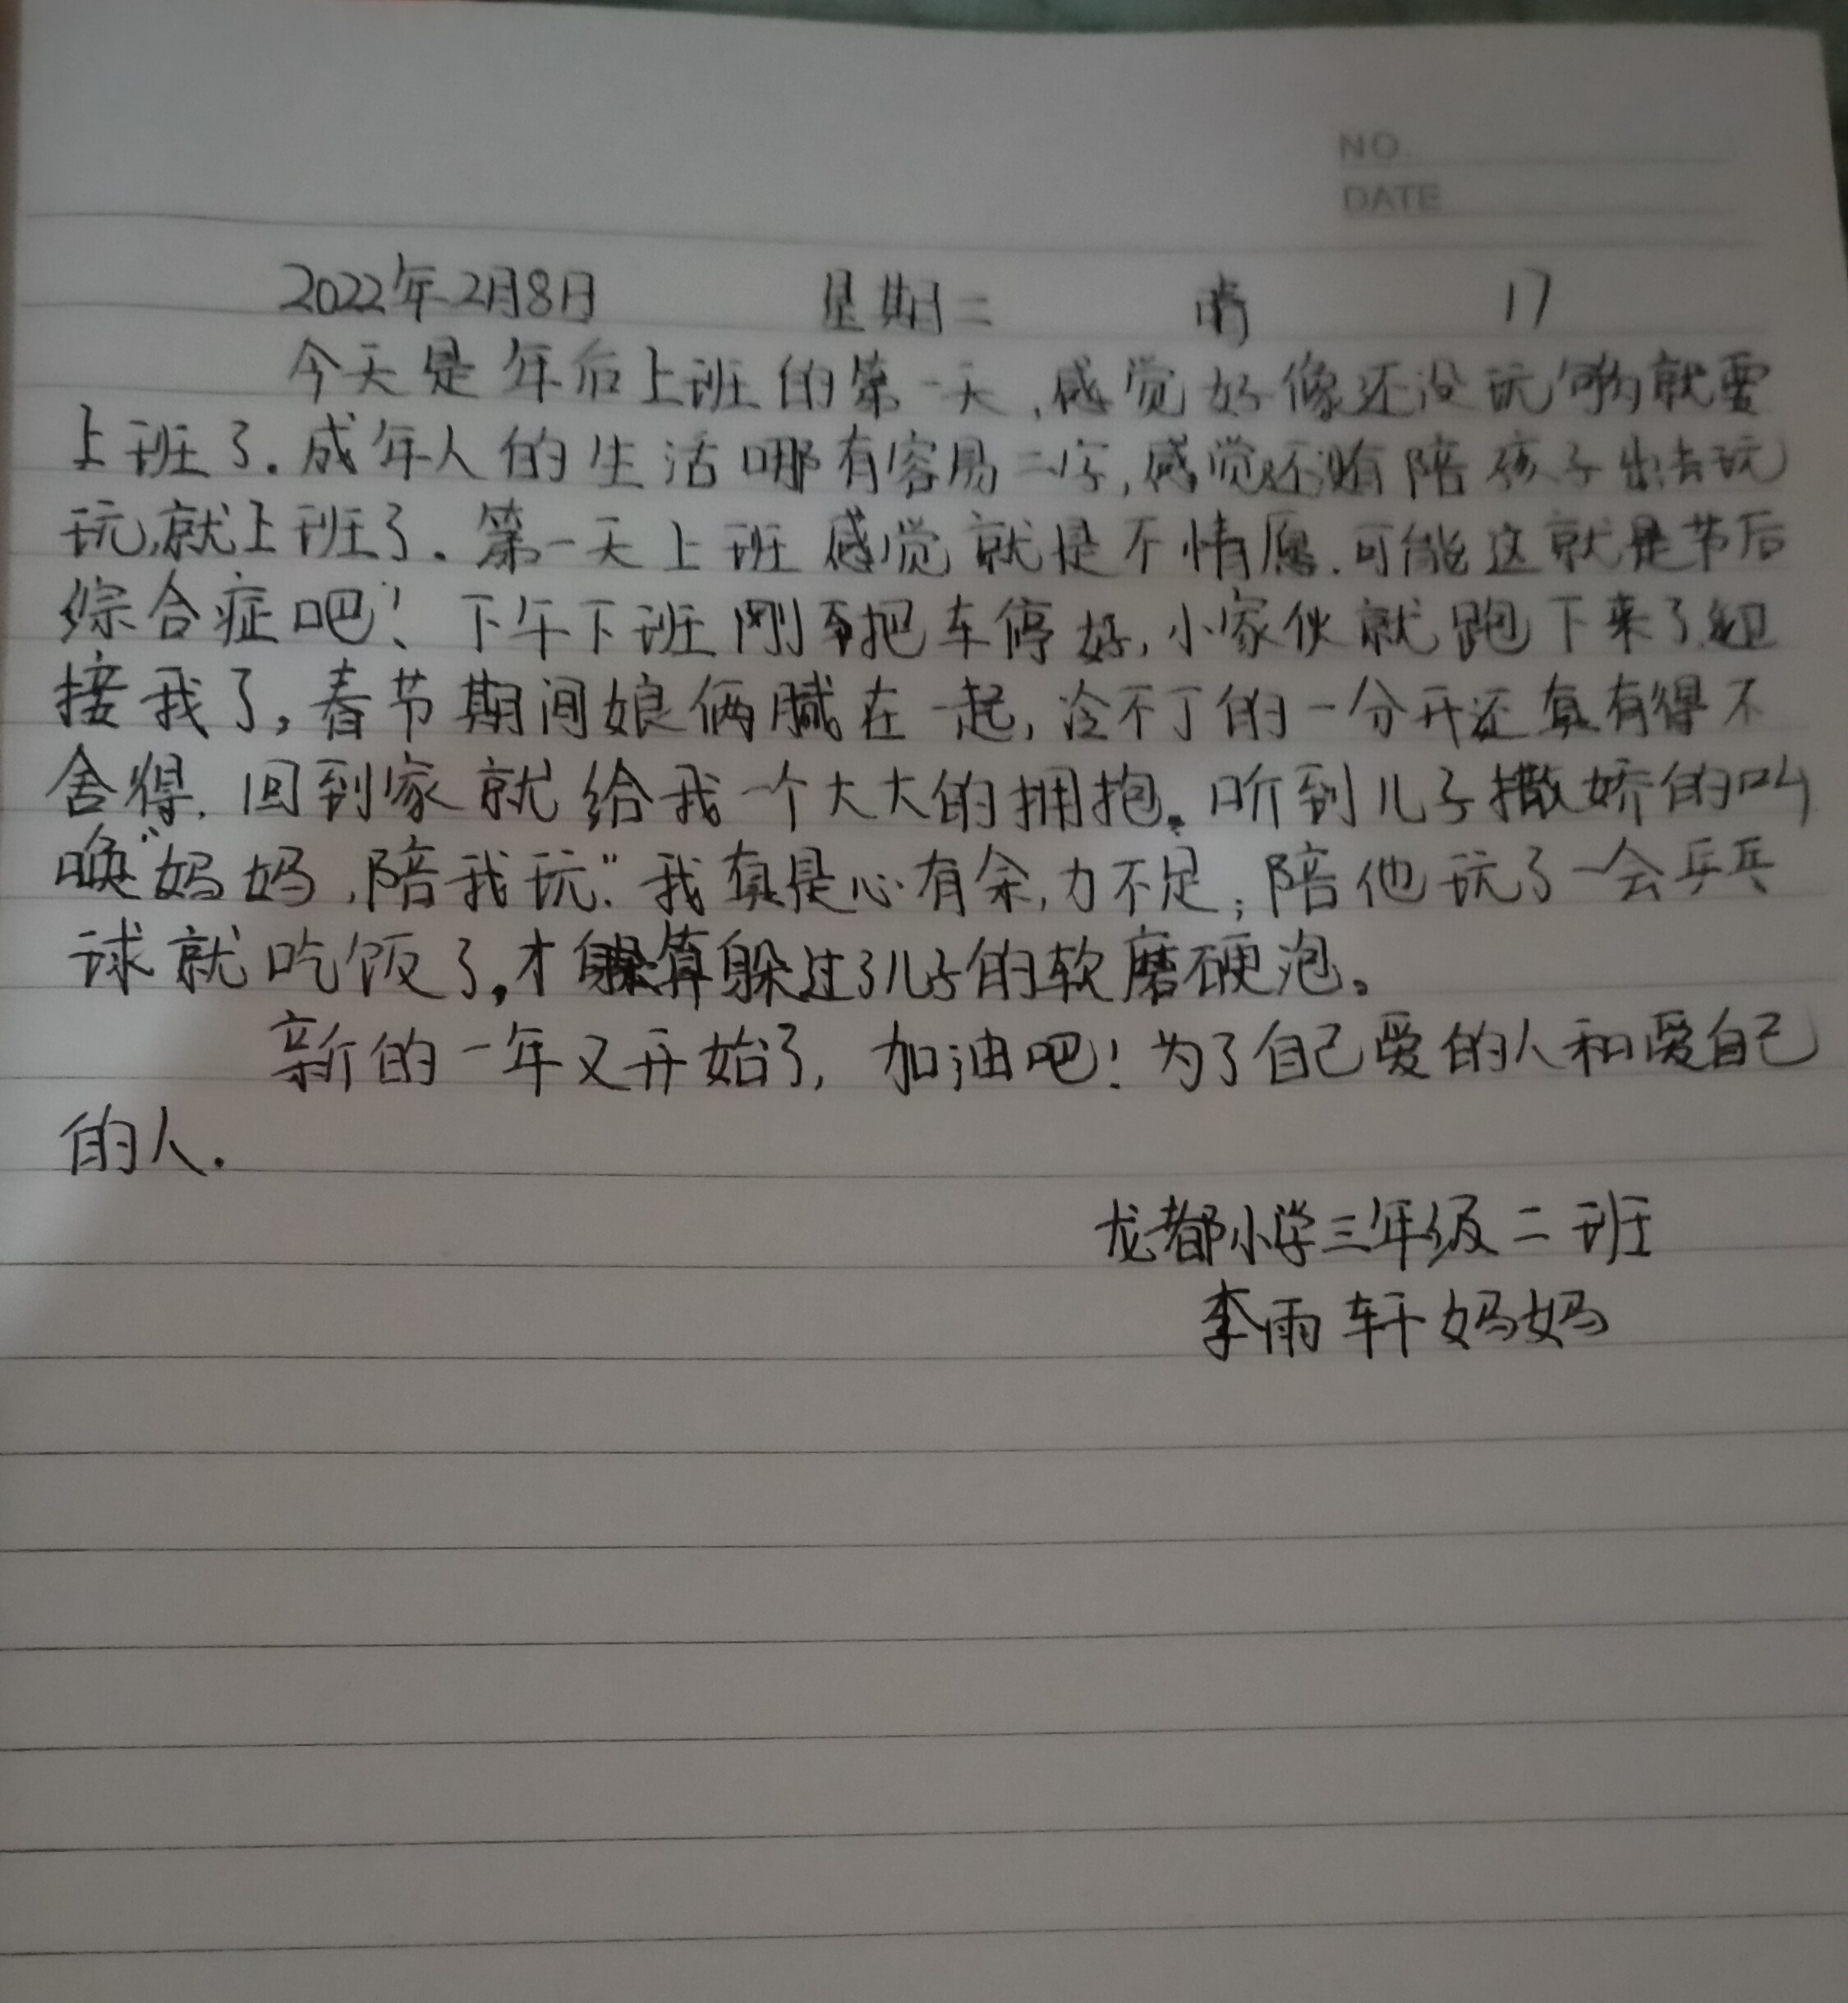 NO.
DATE
2022年2月8日 星期二 晴 17
今天是年后上班的第一天,感觉好像还没玩够就要
上班了.成年人的生活哪有容易二字,感觉还没有陪孩子出去玩
玩,就上班了.第一天上班感觉就是不情愿.可能这就是节后
综合症吧!下午下班刚把车停好,小家伙就跑下来了迎
接我了,春节期间娘俩腻在一起,冷不丁的一分开还真有得不
舍得.回到家就给我一个大大的拥抱。听到儿子撒娇的叫
唤"妈妈,陪我玩."我真是心有余,力不足;陪他玩了一会乒乓
球就吃饭了,才算躲过了儿子的软磨硬泡。
新的一年又开始了,加油吧!为了自己爱的人和爱自己
的人.
龙都小学三年级二班
李雨轩妈妈